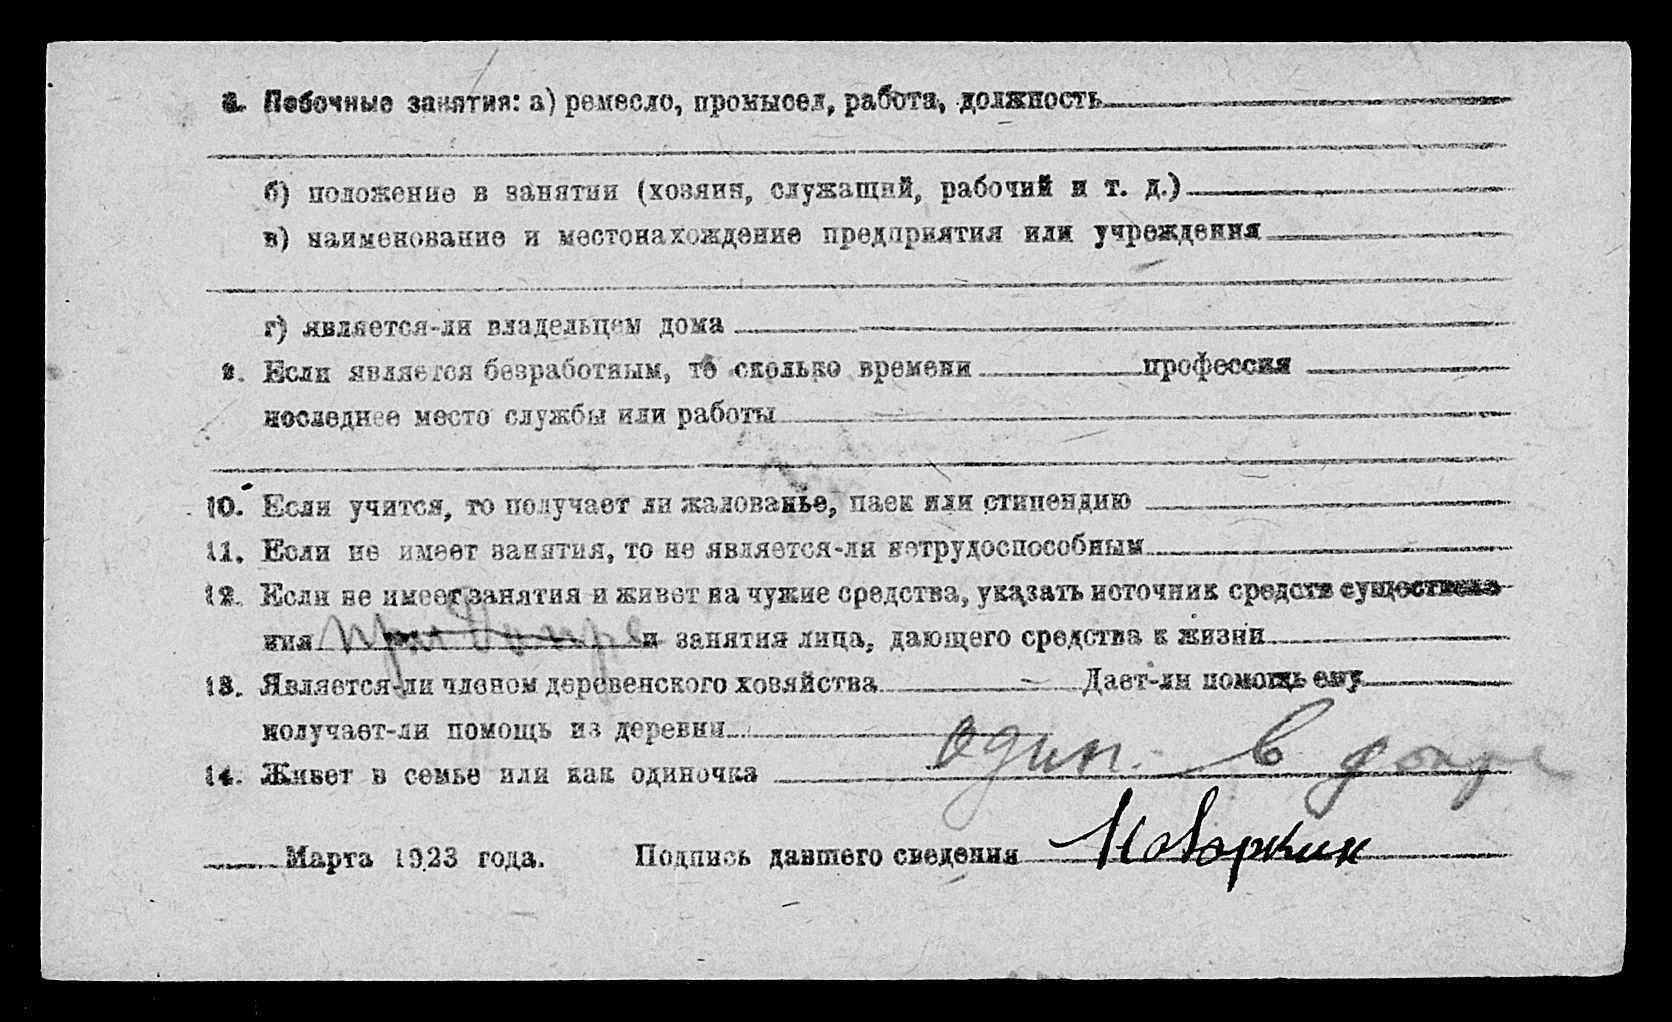 8. Побочные занятия: а) ремесло, промысел, работа, должность
б) положение в занятии (хозяин, служащий, рабочий и т. д.)
в) наименование и местонахождение предприятия или учреждения
г) является-ли владельцем дома
9. Если является безработным, то сколько времени профессия
последнее место службы или работы
10. Если учится, то получает ли жалованье, паек или стипендию
11. Если не имеет занятия, то не является-ли нетрудоспособным
12. Если не имеет занятия и живет на чужие средства, указать источник средств существова-
ния при Допре и занятия лица, дающего средства к жизни
13. Является-ли членом деревенского хозяйства Дает-ли помощь ему
получает-ли помощь из деревни
14. Живет в семье или как одиночка один. в допре
Марта 1923 года. Подпись давшего сведения